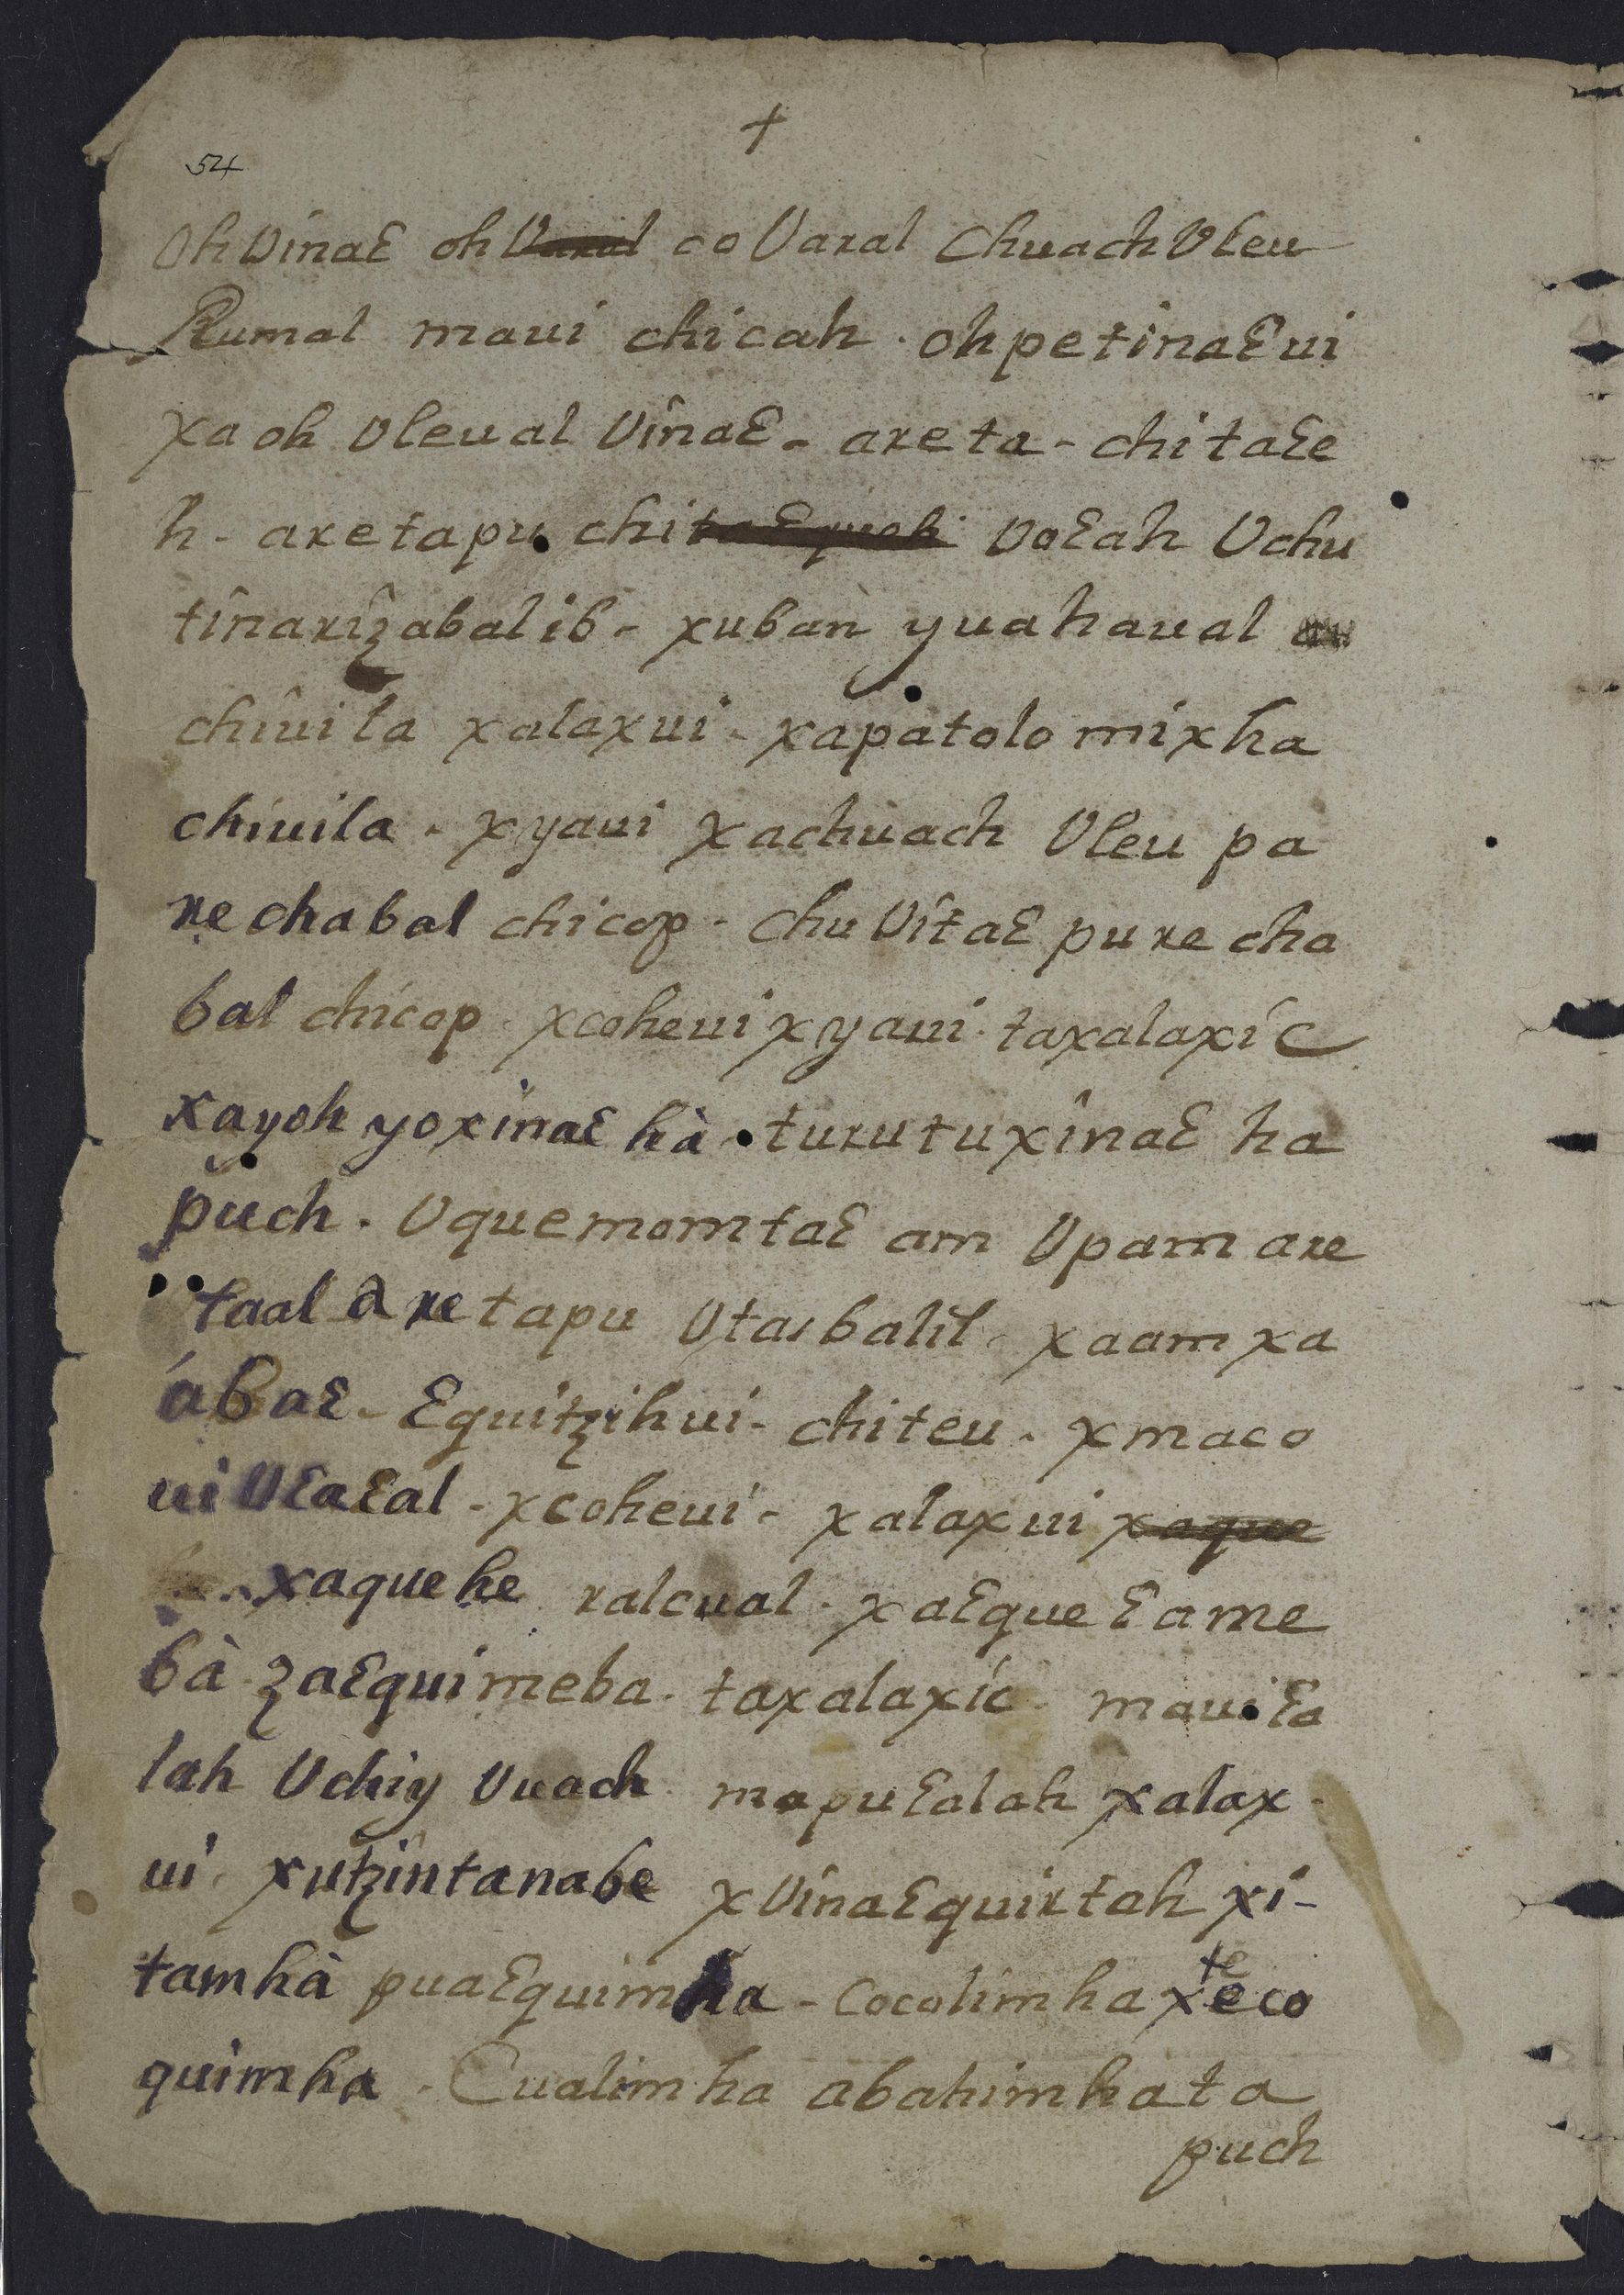 +
54
Oh Vinaɛ oh Vaxal co Vaxal Chuach Vleu
Rumal maui chicah . oh petinaɛ ui
xa oh Vleual Vînaɛ - axe ta - chi taɛe
h - axe tapu chi Voɛah Vchu
tînaxîꜩabal ib - xuban yuahaual
chîuila xalaxui - xapatolo mixha
chiuila . xyaui xachuach Vleu pa
xe chabal chicop - chu Vîtaɛ pu xe cha
bal chicop . xcoheui xyaui . taxalaxic
xayoh yoxinaɛ hà . tuxutuxînaɛ ha
puch . Vquemomtaɛ am Vpam axe
taal axe tapu Vtasbalil . xaam xa
ábaɛ - ɛquitzihui - chiteu . xmaco
ui Vɛaɛal - xcoheui - xalaxui xaque
xaquehe xalcual . xaɛque ɛame
bà zaɛquimeba . taxalaxic . maui ɛa
lah Vchiy Vuach . mapu ɛalah xalax
ui . xutzîntanabe xVînaɛquixtah xi-
tamhà puaɛquimha - Cocolimha xteco
quimha . Cualimha abahimha ta
puch